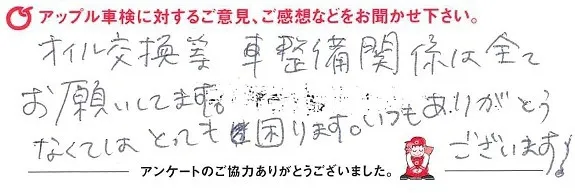 アップル車検に対するご意見、ご感想などをお聞かせ下さい。
オイル交換等 車整備関係は全て
お願いしてます。
なくてはとっても困ります。いつもありがとう
ございます!
アンケートのご協力ありがとうございました。